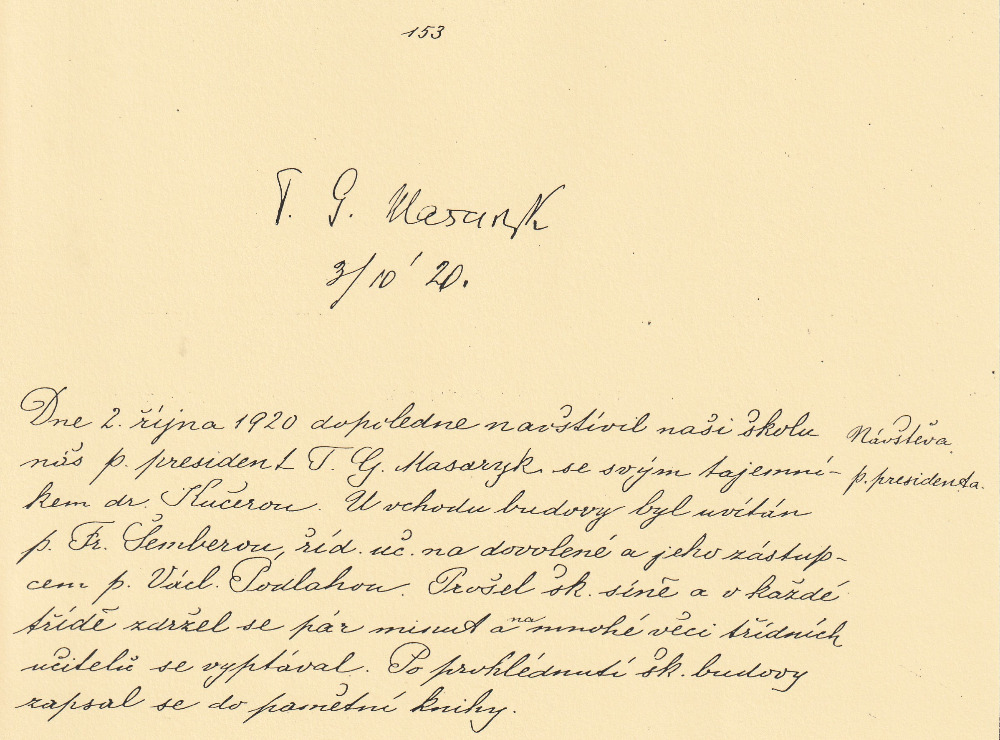 153
T. G. Masaryk
3/10 ' 20.
Dne 2. října 1920 dopoledne navštívil naši školu
Návštěva
náš p. president T. G. Masaryk se svým tajemní-
p. presidenta.
kem dr. Kučerou. U vchodu budovy byl uvítán
p. Fr. Šemberou, říd. uč. na dovolené a jeho zástup-
cem p. Václ. Podlahou. Prošel šk. síně a v každé
třídě zdržel se pár minut a na mnohé věci třídních
učitelů se vyptával. Po prohlédnutí šk. budovy
zapsal se do pamětní knihy.